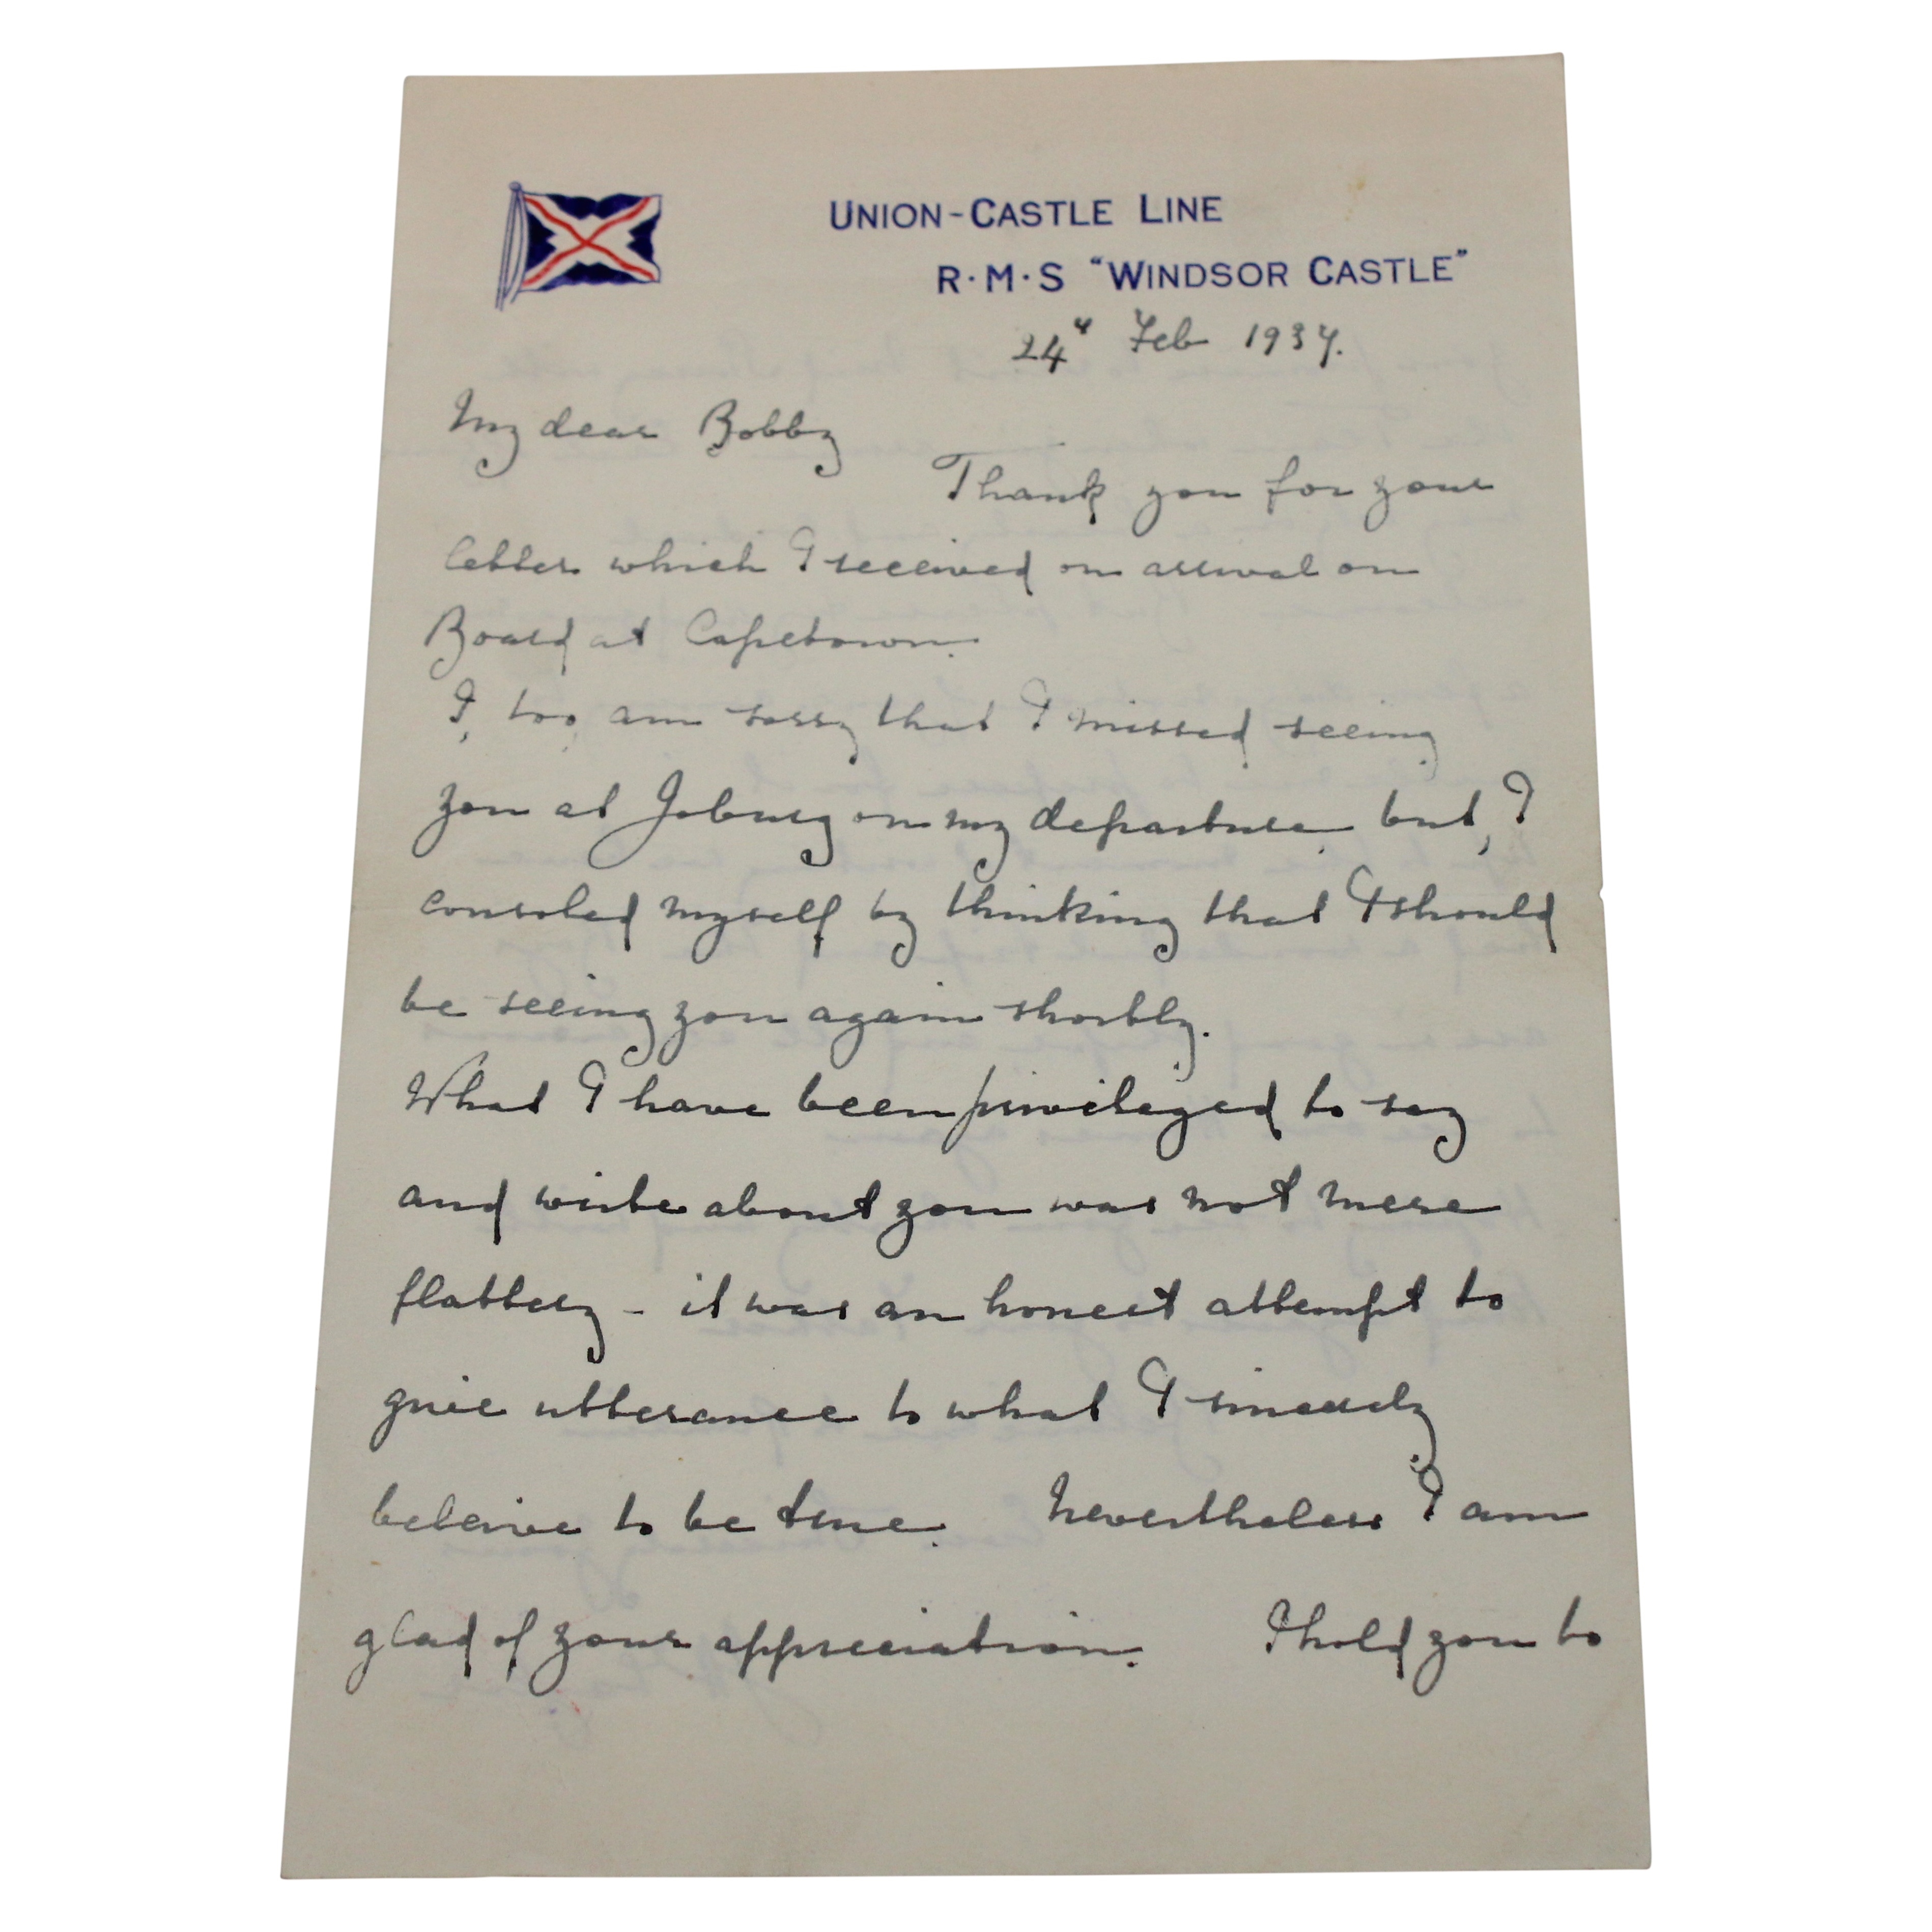 UNION-CASTLE LINE
R·M·S "WINDSOR CASTLE"
24" Feb 1937.
My dear Bobby
Thank you for your
letter which I received on arrival on
Board at Capetown.
I, too, am sorry that I missed seeing
you at Joburg on my departure, but, I
consoled myself by thinking that I should
be seeing you again shortly.
What I have been privileged to say
and write about you was not mere
flattery - it was an honest attempt to
give utterance to what I sincerely
beleive to be true. Nevertheless I am
glad of your appreciation. I hold you to